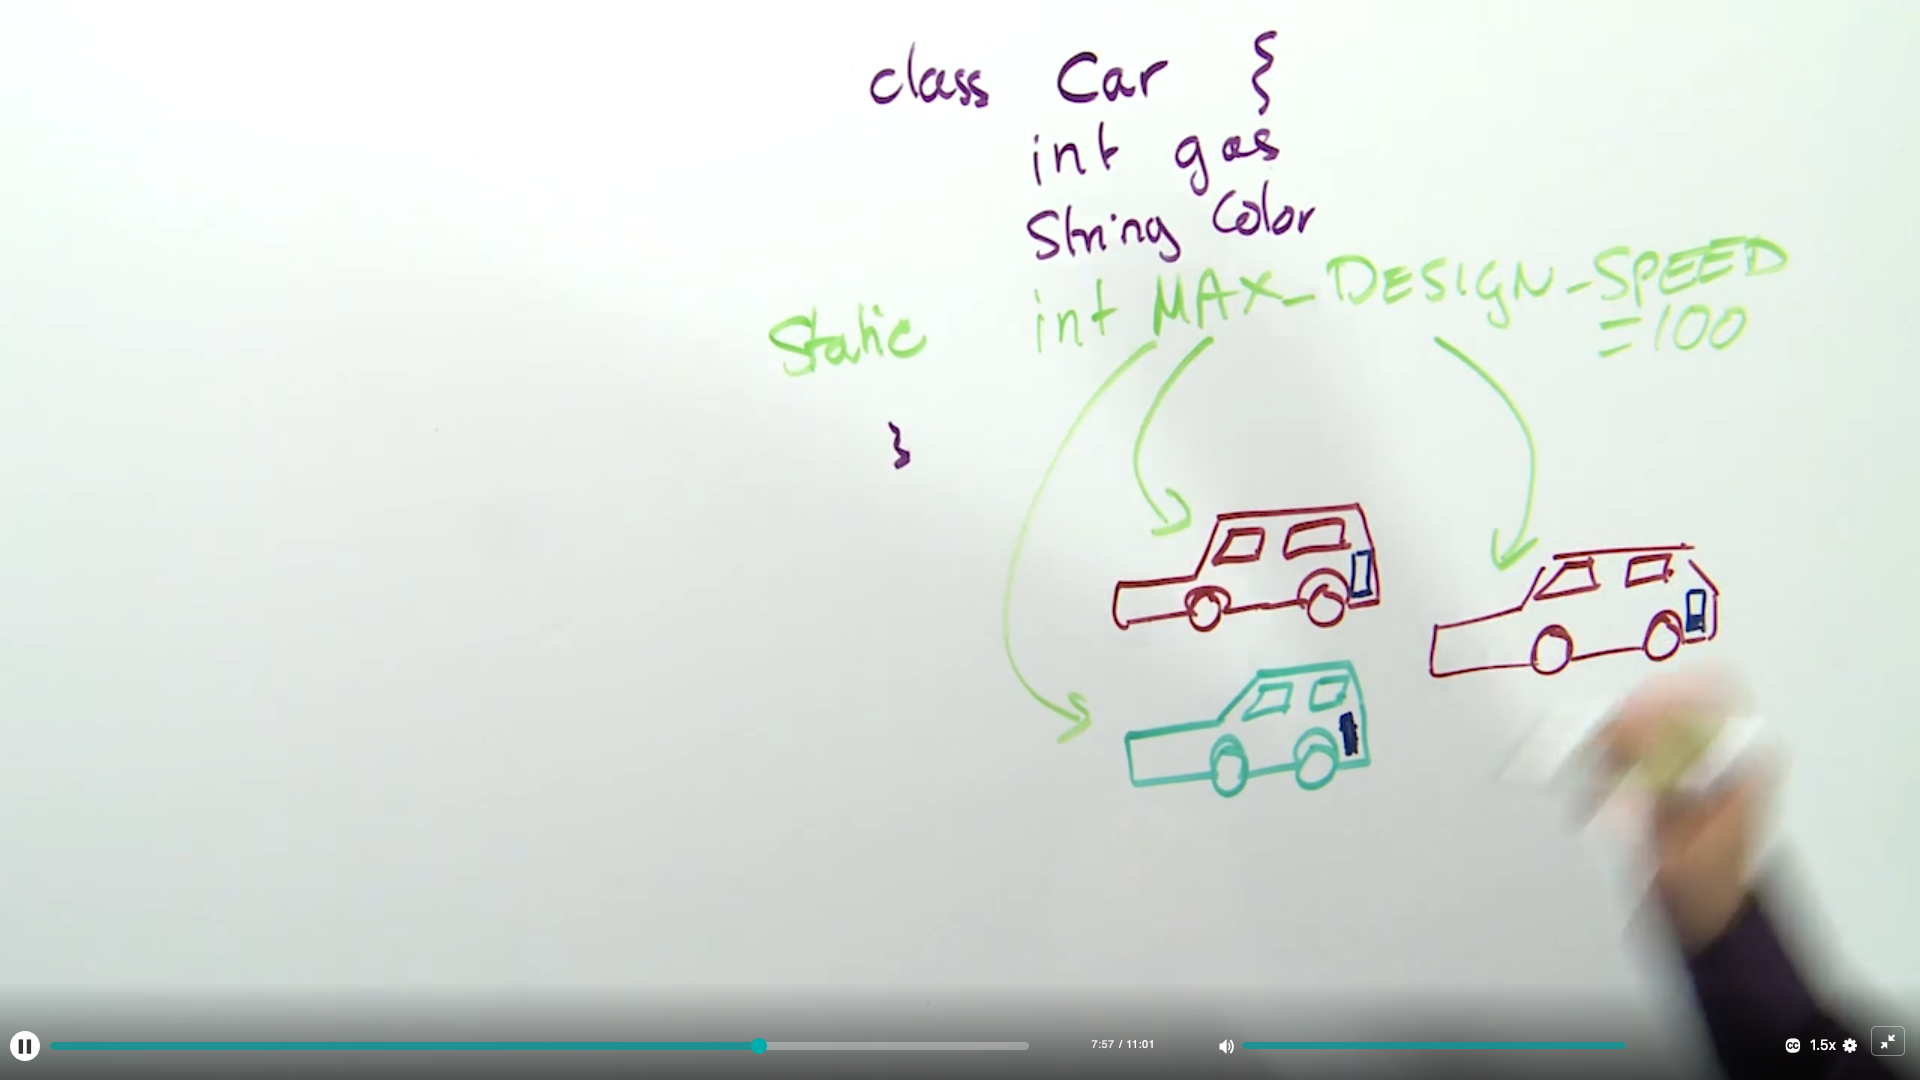 class Car {
int gas
String Color
Static int MAX_DESIGN_SPEED
=100
}
7:57 / 11:01
CC 1.5x